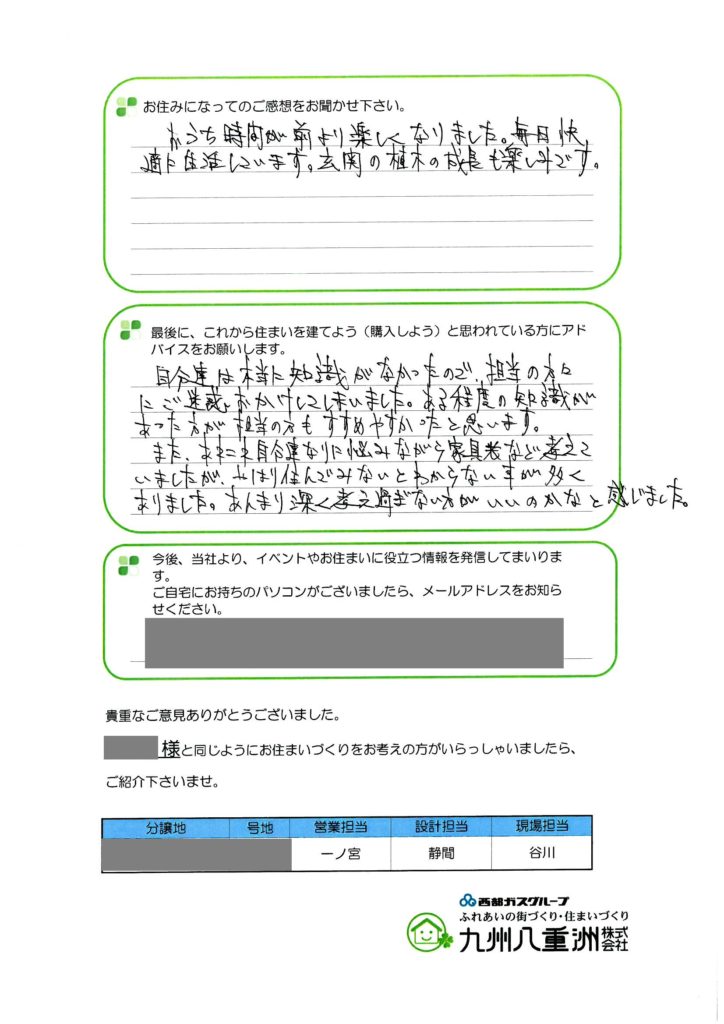 お住みになってのご感想をお聞かせ下さい。
おうち時間が前より楽しくなりました。毎日快
適に生活しています。玄関の植木の成長も楽しみです。
最後に、これから住まいを建てよう（購入しよう）と思われている方にアド
バイスをお願いします。
自分達は本当に知識がなかったので、担当の方々
にご迷惑おかけしてしまいました。ある程度の知識が
あった方が担当の方もすすめやすかったと思います。
また、あれこれ自分達なりに悩みながら家具など考えて
いましたが、やはり住んでみないとわからない事が多く
ありました。あんまり深く考え過ぎない方がいいのかなと感じました。
今後、当社より、イベントやお住まいに役立つ情報を発信してまいりま
す。
ご自宅にお持ちのパソコンがございましたら、メールアドレスをお知ら
せください。
貴重なご意見ありがとうございました。
様と同じようにお住まいづくりをお考えの方がいらっしゃいましたら、
ご紹介下さいませ。
分譲地 号地 営業担当 設計担当 現場担当
一ノ宮 静間 谷川
西部ガスグループ
ふれあいの街づくり・住まいづくり
九州八重洲株式会社